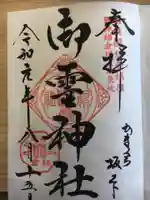 奉拝
かまくら
坂ノ下
御霊神社
令和元年八月十五日